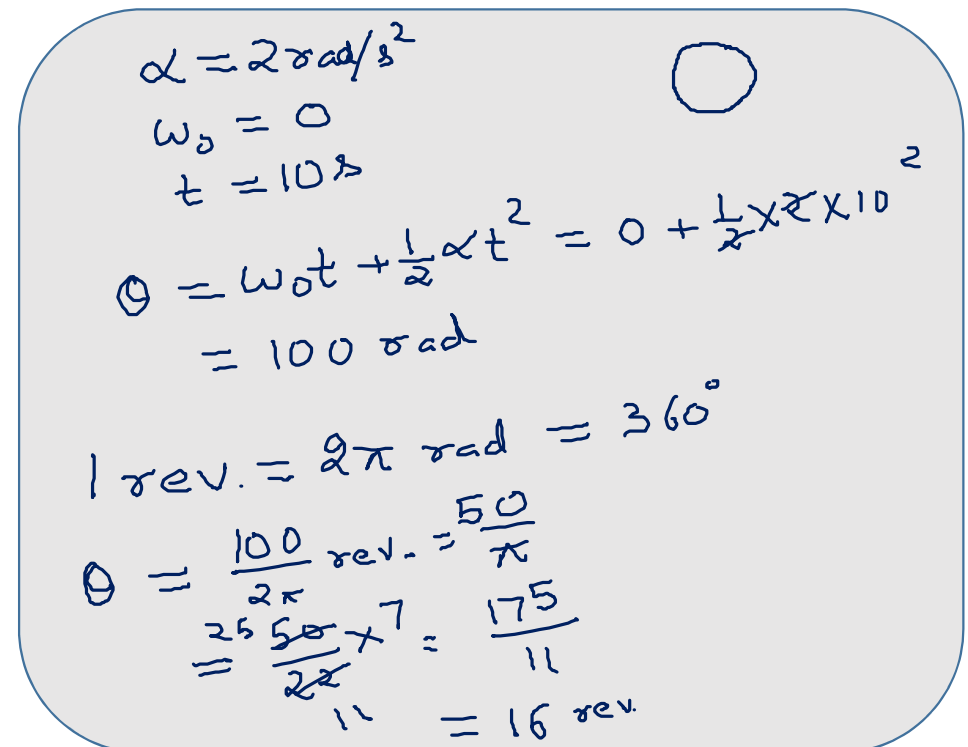 α = 2 rad/s²
ω₀ = 0
t = 10 s
θ = ω₀t + 1/2 αt² = 0 + 1/2 × 2 × 10²
= 100 rad
1 rev. = 2π rad = 360°
θ = 100/2π rev. = 50/π
= 25 50/22 × 7 = 175/11
11
= 16 rev.